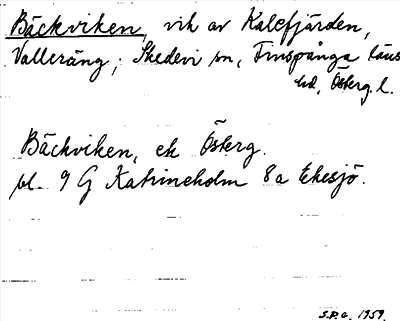 Bäckviken, vik av Kalvfjärden,
Valleräng, Skedevi sn, Finspånga läns
hd, Österg. l.
Bäckviken, ek Österg.
bl. 9 G Katrineholm 8a Ekesjö.
S.P.G. 1959.